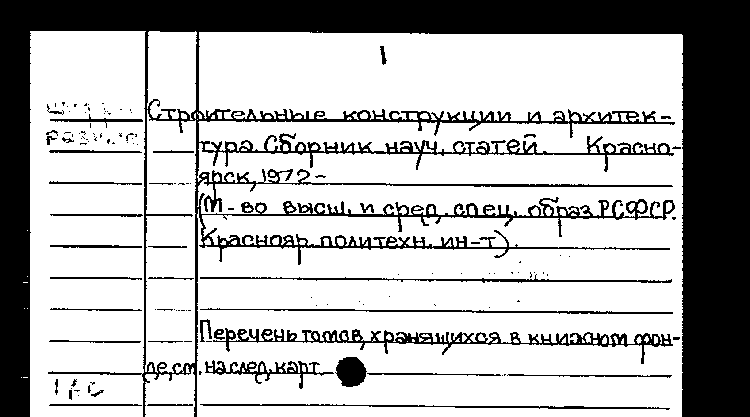 1
Строительные конструкции и архитек-
тура. Сборник науч. статей. Красно-
ярск, 1972-
(М-во высш. и сред. спец. образ. РСФСР.
Краснояр. политехн. ин-т).
Перечень томов, хранящихся в книжном фон-
де, см. на след. карт.